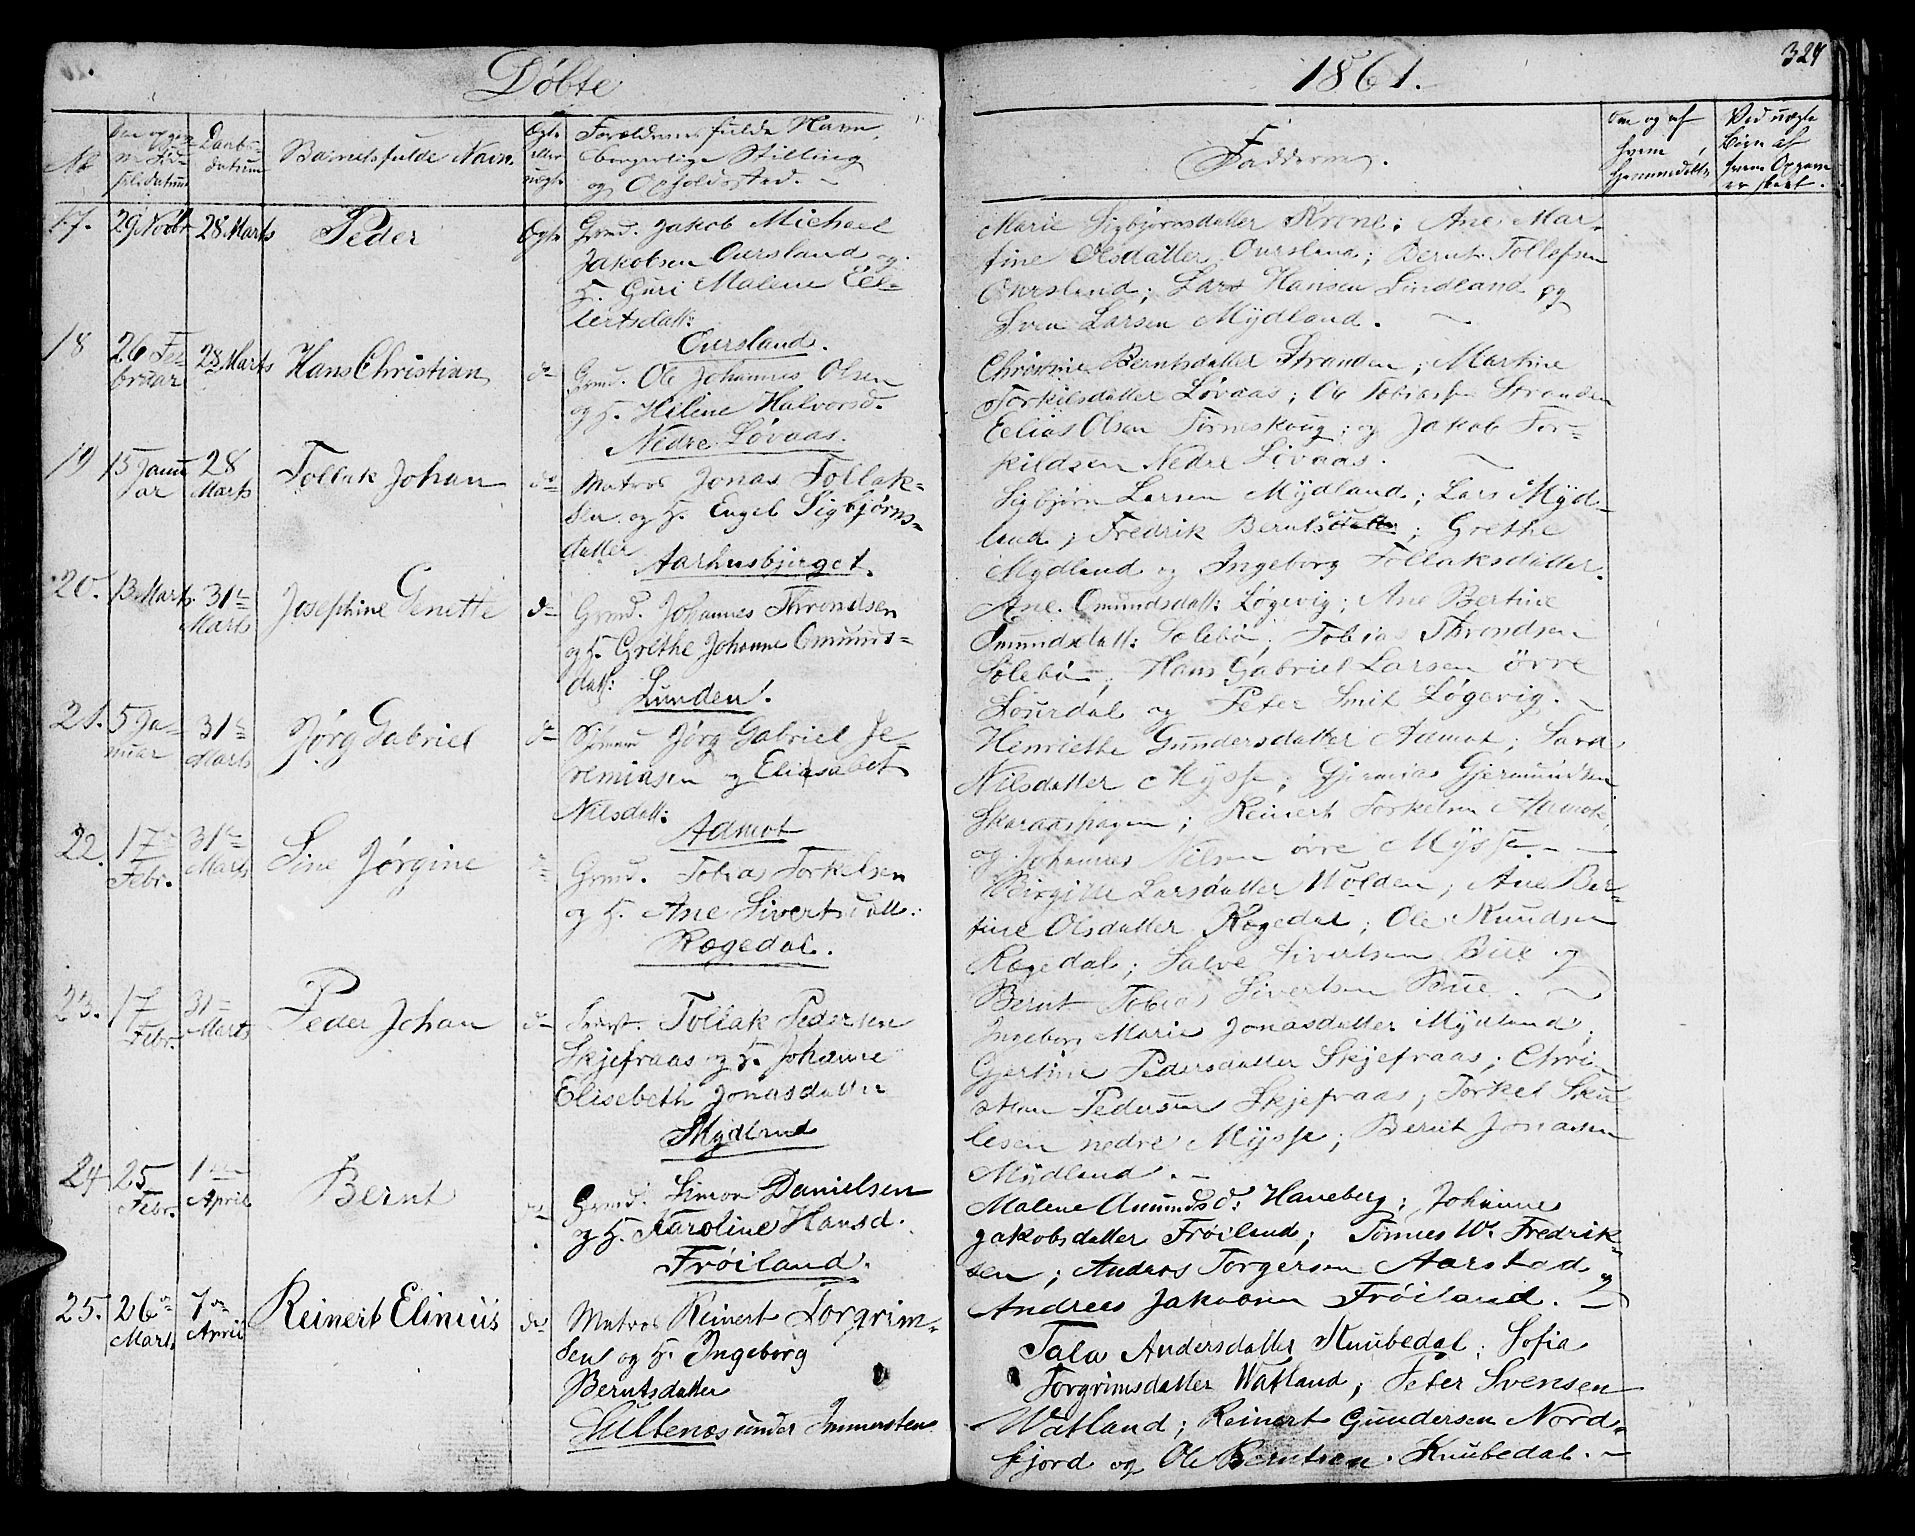 Döbte
1861.
324
No
Barnets fulde Navn.
Ægte eller uægte
Forældrenes fulde Navn, borgerlige Stilling og Opholdssted. -
Fadderne.
17. 29 Novbr 28 Marts Peder Ægte Grmd. Jakob Michael
Jakobsen Oursland og
H. Guri Malene Eel-
lertsdatt:
Oursland.
Marie Sigbjørnsdatter Krone; Ane Mar-
tine Olsdatter Oursland; Bernt Tollefsen
Oursland; Lars Hansen Lindland og
Sven Larsen Mydland. -
18 26 Fe-
bruar 28 Marts Hans Christian do Grmd. Ole Johannes Olsen
og H. Helene Halvorsd.
Nedre Løvaas.
Berntsdatter Stranden; Martine
Torkilsdatter Løvaas; Ole Tobiassen Stranden
Eelias Olsen Torneskoug; og Jakob Tor-
kildsen Nedre Løvaas.
19 15 Janu
ar 28
Marts Tollak Johan do Matros Jonas Tollak-
sen og H. Engel Sigbjørns-
datter
Aarhusbjerget.
Sigbjørn Larsen Mydland; Lars Myd-
land; Fredrik Bernts; Grethe
Mydland og Ingeborg Tollaksdatter.
20. 13 Marts 31te
Marts Josephine Genette do Grmd. Johannes Throndsen
og H. Grethe Johanne Omunds-
datt:
Lunden.
Ane Omundsdatt: Løgevig; Ane Bertine
Omundsdatt: Solebø; Tobias Throndsen
Solebø; Hans Gabriel Larsen øvre
Sourdal og Peter Smit Løgevig. -
21. 5 Ja-
nuar 31te
Marts Jørg Gabriel do Jørg Gabriel Je-
remiasen og Eliasabet
Nilsdatt:
Aamot
Henriette Gundersdatter Aamot; Sara
Nilsdatter Mysse; Gjermundsen
Skaraashagen; Reinert Torkelsen Aamot;
og Johannes Nilsen øvre Mysse. -
22. 17
Febr. 31te
Marts Sine Jørgine Grmd. Tobias Torkelsen
og H. Ane Sivertsdatt:
Rægedal.
Birgitte Larsdatter Wolden; Ane Ber-
tine Olsdatter Rægedal; Ole Knudsen
Rægedal; Salve Sivertsen Bue og
Bernt Tobias Sivertsen Bue. -
23. 17
Febr. 31
Marts Peder Johan do Tollak Pedersen
Skjefraas og H. Johanne
Elisebeth Jonasdatter
Mydland
Ingeborg Marie Jonasdatter Mydland;
Gjertine Pedersdatter Skjefraas; Chri-
stian Pedersen Skjefraas; Torkel Sku-
lesen nedre Mysse; Bernt Jonasen
Mydland. -
24 25
Febr. 1
April Bernt do Grmd. Simon Danielsen
og H. Karoline Hansd.
Frøiland.
Malene Amundsd: Haneberg; Johanne
Jakobsdatter Frøiland; Tønnes W. Fredrik-
sen; Andreas Torgersen Aarstad og
Andreas Jakobsen Frøiland. -
25. 26
Marts 7
April Reinert Elinius do Matros Reinert Torgrim-
sen og H. Ingeborg
Berntsdatter
under Immersten
Tala Andersdatter Knubedal; Sofia
Torgrimsdatter Watland; Peter Svensen
Watland; Reinert Gundersen Nord-
fjord og Ole Berntsen Knubedal. -